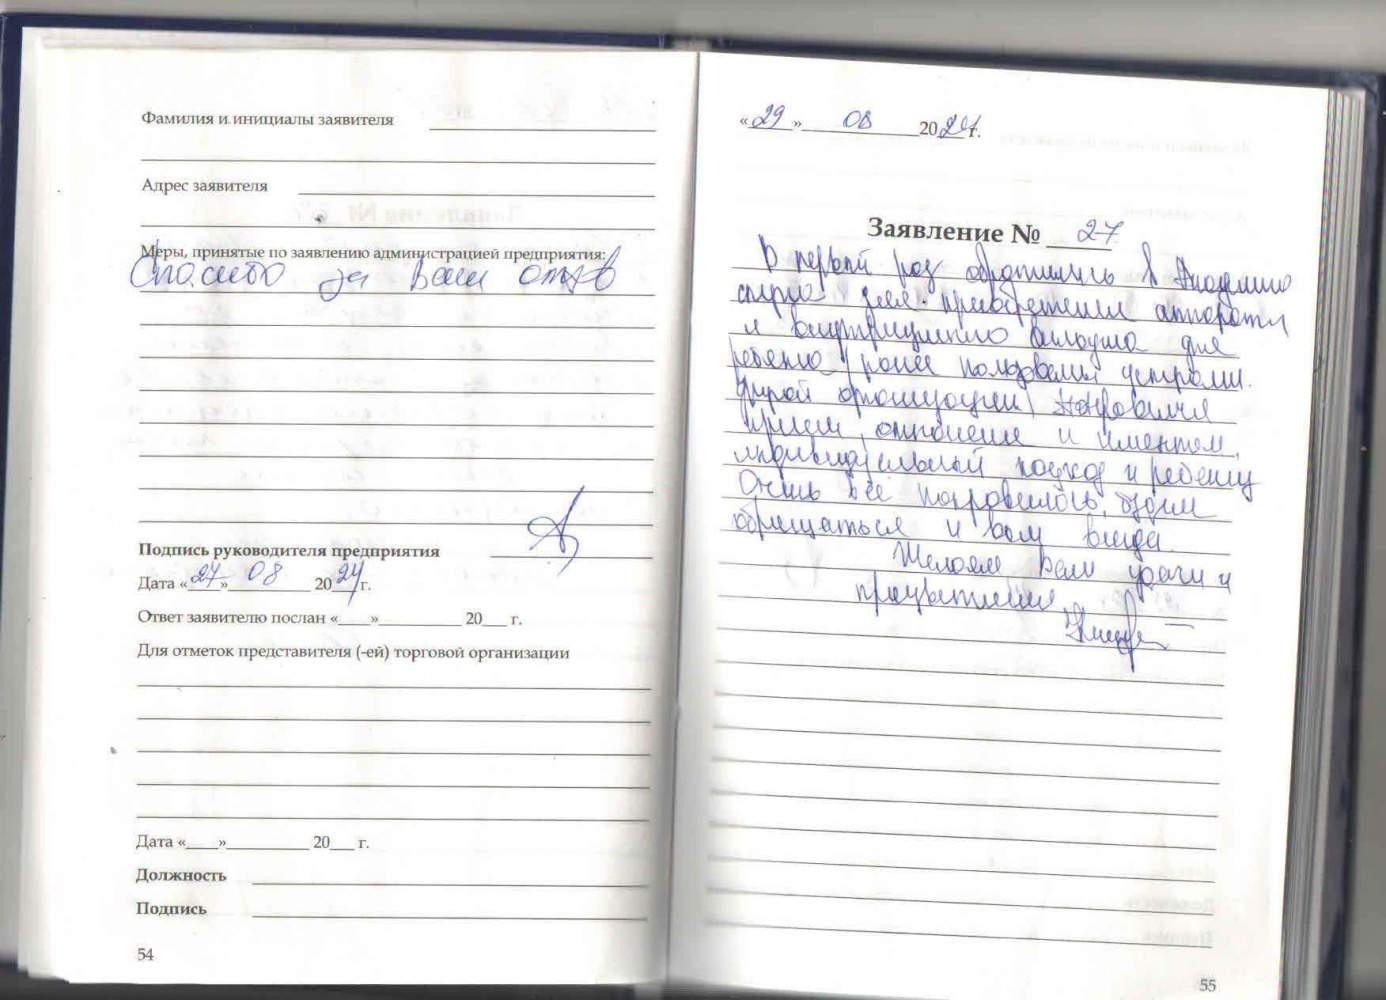 Фамилия и инициалы заявителя
Адрес заявителя
Меры, принятые по заявлению администрацией предприятия:
Спасибо за Ваш отзыв
Подпись руководителя предприятия
Дата «27» 08 2024 г.
Ответ заявителю послан «____»__________ 20___ г.
Для отметок представителя (-ей) торговой организации
Дата «____»__________ 20___ г.
Должность
Подпись
54
«29» 08 2024 г.
Заявление № 27
В первый раз обратились в Академию
слуха для приобретения аппарата
и внутриушного вкладыша для
ребенка (ранее пользовались услугами
другой организации). Понравился
прием, отношение к клиентам,
индивидуальный подход к ребенку
Очень все понравилось, будем
обращаться к вам всегда.
Желаем Вам удачи и
процветания
55